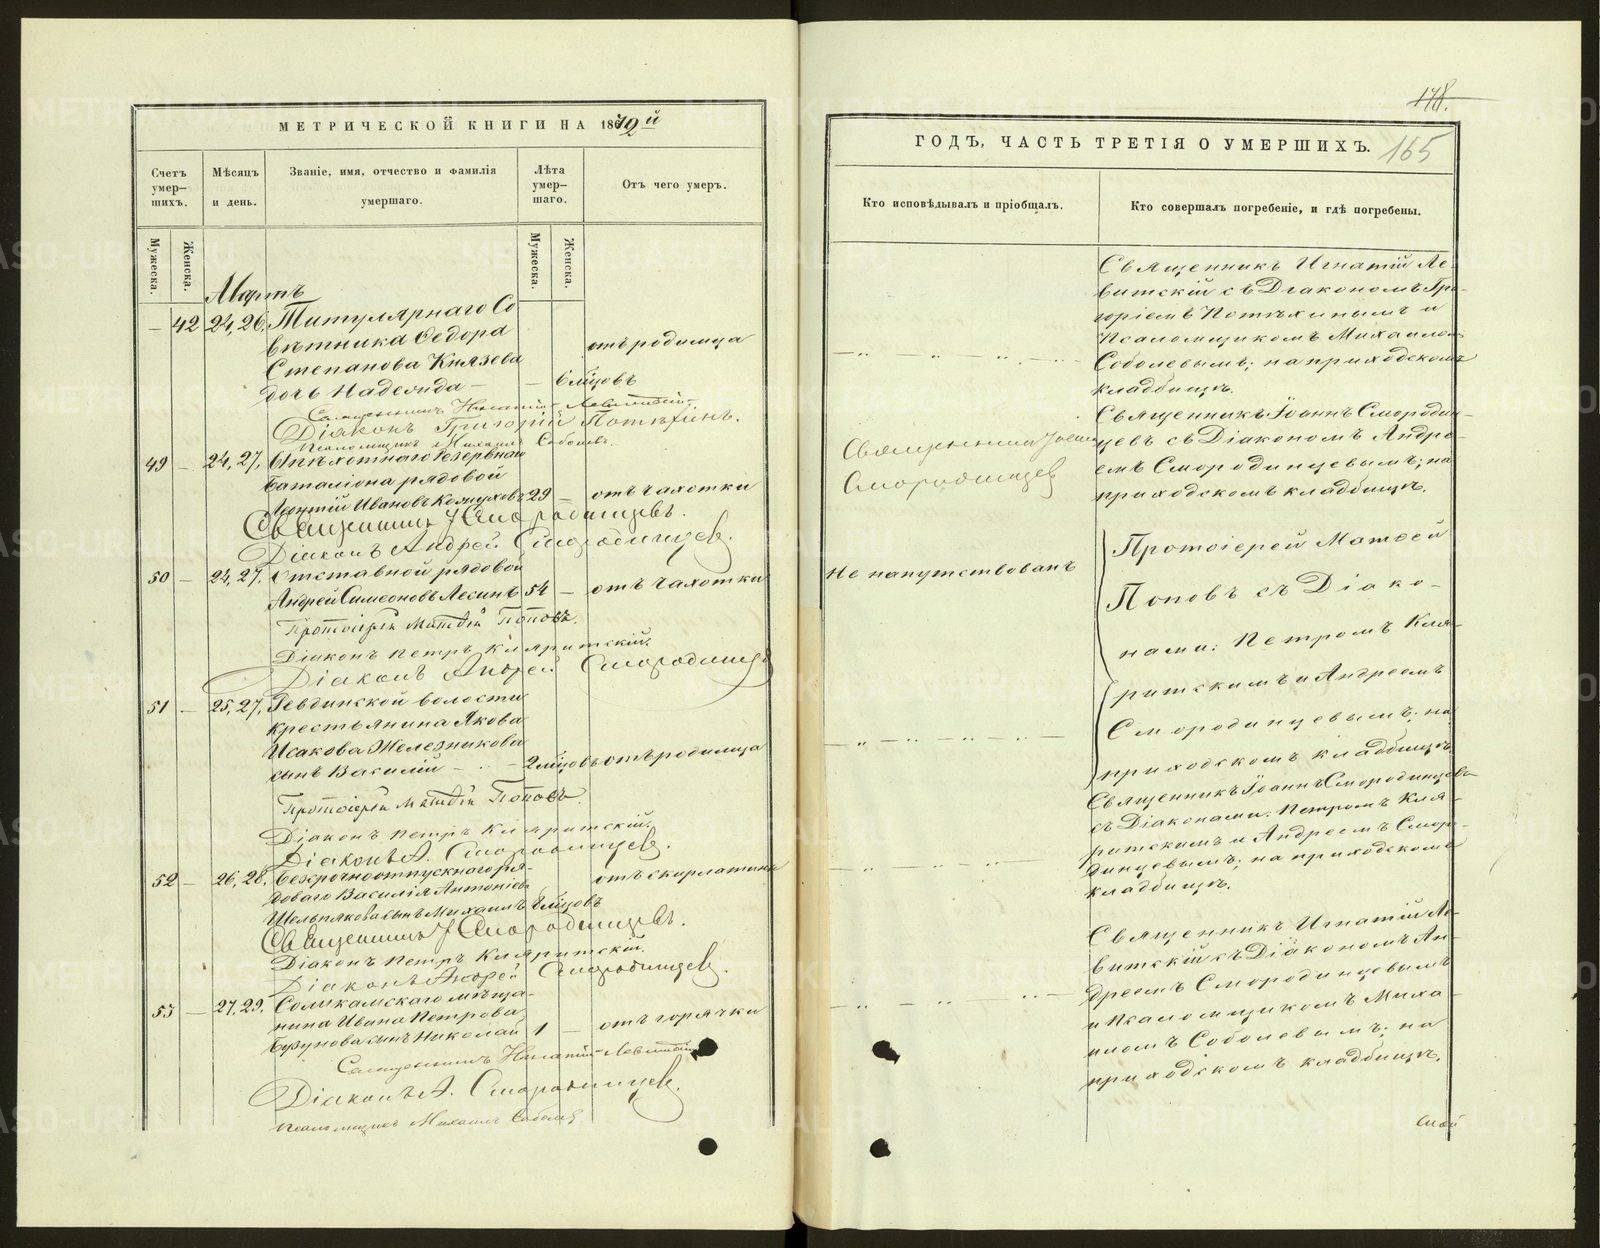 МЕТРИЧЕСКОЙ КНИГИ НА 1872й
Счетъ умерших. Мѣсяцъ и день. Званіе, имя, отчество и фамилія умершаго. Лѣта умершаго. Отъ чего умеръ.
Мужеска. Женска. Мужеска. Женска.
Мартъ
— 42 24, 26. Титулярнаго Со
вѣтника Ѳедора отъ родимца
Степанова Князева
дочь Надежда — — 6 мѣцовъ
Священникъ Игнатій Левитскій
Діаконъ Григорій Потѣхинъ.
Псаломщикъ Михаилъ Соболевъ.
49 — 24, 27. Пѣхотнаго резервнаго
баталіона рядовой
Ивановъ Кожуховъ 29 — отъ чахотки
Священникъ І Смородинцевъ.
Діаконъ Андрей Смородинцевъ.
50 — 24, 27. Отставной рядовой
Андрей Симеоновъ Лесинъ 54 — отъ чахотки
Протоіерей Матѳій Поповъ.
Діаконъ Петръ Кляритскій.
Діаконъ Андрей Смородинцевъ
51 — 25, 27. Ревдинской волости
крестьянина Якова
Исакова Железникова
сынъ Василій — 2 мѣцовъ отъ родимца
Протоіерей Матѳій Поповъ.
Діаконъ Петръ Кляритскій.
Діаконъ А. Смородинцевъ.
52 — 26, 28. Безсрочноотпускнаго ря-
доваго Василія Антоніева отъ скарлатины
сынъ Михаилъ 8 мѣцовъ
Священникъ І Смородинцевъ.
Діаконъ Петръ Кляритскій.
Діаконъ Андрей Смородинцевъ.
53 — 27, 29. Соликамскаго мѣща-
нина Ивана Петрова
сынъ Николай 1 — отъ горячки
Священникъ Игнатій Левитскій
Діаконъ А. Смородинцевъ.
Псаломщикъ Михаилъ Соболевъ
178.
ГОДЪ, ЧАСТЬ ТРЕТІЯ О УМЕРШИХЪ. 165
Кто исповѣдывалъ и пріобщалъ. Кто совершалъ погребеніе, и гдѣ погребены.
Священникъ Игнатій Ле-
витскій съ Діакономъ Гри-
горіемъ Потѣхинымъ и
Псаломщикомъ Михаиломъ
Соболевымъ; на приходскомъ
кладбищѣ.
Священникъ Іоаннъ Смородин-
Священникъ Іоаннъ цевъ съ Діакономъ Андре-
Смородинцевъ емъ Смородинцевымъ; на
приходскомъ кладбищѣ.
Протоіерей Матѳей
Не напутствованъ Поповъ съ Діако-
нами: Петромъ Кля-
ритскимъ и Андреемъ
Смородинцевымъ; на
приходскомъ кладбищѣ.
Священникъ Іоаннъ Смородинцевъ
съ Діаконами: Петромъ Кля-
ритскимъ и Андреемъ Сморо-
динцевымъ; на приходскомъ
кладбищѣ.
Священникъ Игнатій Ле-
витскій съ Діакономъ Ан-
дреемъ Смородинцевымъ
и Псаломщикомъ Миха-
иломъ Соболевымъ; на
приходскомъ кладбищѣ.